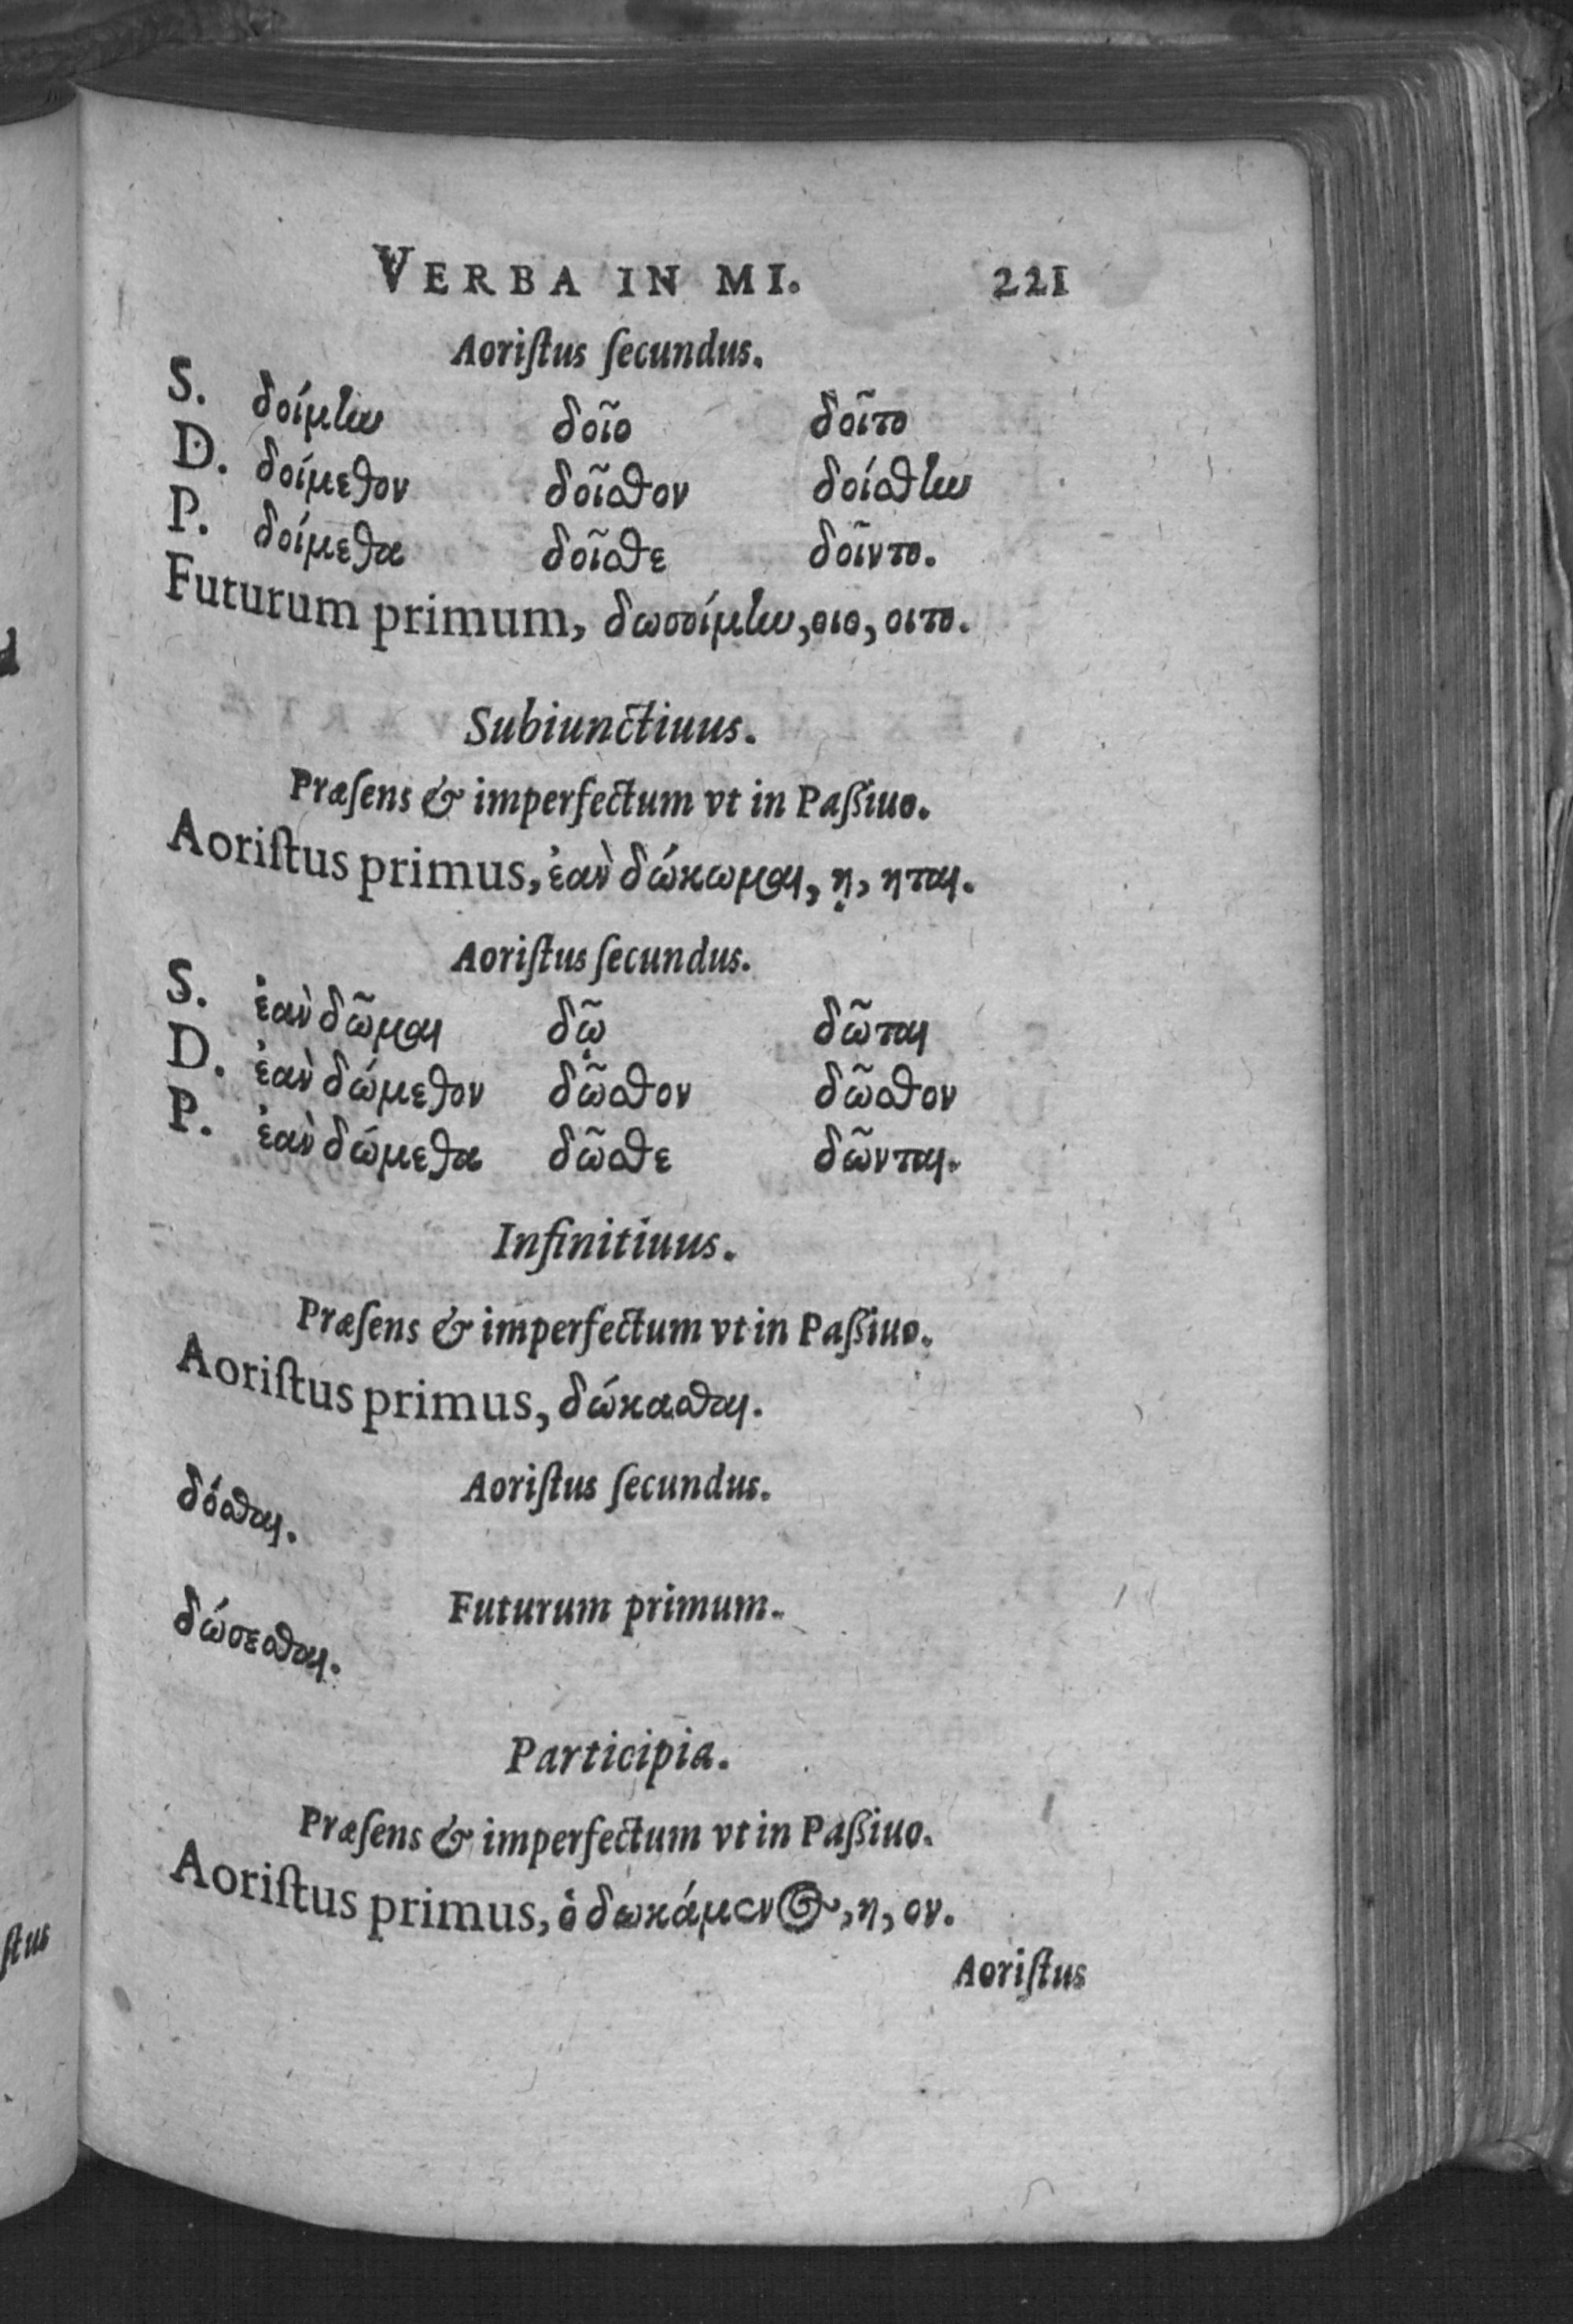 VERBA IN MI. 221
Aoriſtus ſecundus.
S. δοίμην δοῖο δοῖτο
D. δοίμεθον δοῖσθον δοίσθην
P. δοίμεθα δοῖσθε δοῖντο.
Futurum primum, δωσοίμην, οιο, οιτο.
Subiunctiuus.
Præſens & imperfectum vt in Paſsiuo.
Aoriſtus primus, ἐὰν δώκωμαι, ῃ, ηται.
Aoriſtus ſecundus.
S. ἐὰν δῶμαι δῷ δῶται
D. ἐὰν δώμεθον δῶσθον δῶσθον
P. ἐὰν δώμεθα δῶσθε δῶνται.
Infinitiuus.
Præſens & imperfectum vt in Paſsiuo.
Aoriſtus primus, δώκασθαι.
Aoriſtus ſecundus.
δόσθαι.
Futurum primum.
δώσεσθαι.
Participia.
Præſens & imperfectum vt in Paſsiuo.
Aoriſtus primus, ὁ δωκάμενος, η, ον.
Aoriſtus
ſtus